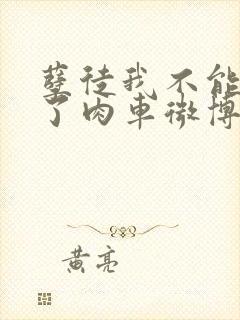 孽徒我不能
了肉车微博
黄亮